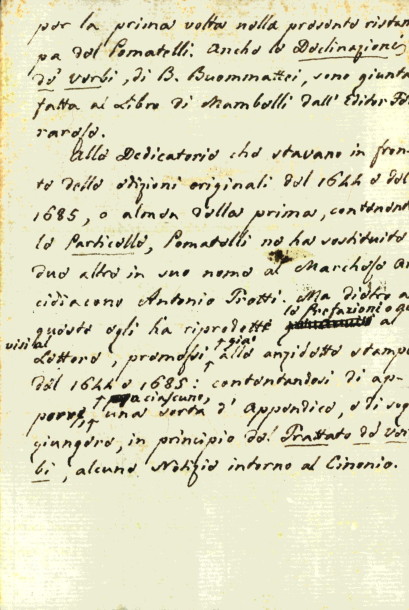 per la prima volta nella presente ristam
pa del Pomatelli. Anche le Declinazioni
de' Verbi, di B. Buommattei, sono giunta
fatta al Libro di Mambelli dall' Editor Fer
rarese.
Alle Dedicatorie che stavano in fron
te delle edizioni originali del 1644 e del
1685, o almen della prima, contenente
le Particelle, Pomatelli ne ha sostituito
due altre in suo nome al Marchese Ar
cidiacono Antonio Trotti. Ma dietro a
le Prefazioni o gli av
queste egli ha riprodotte al
visi al
Lettore, premessi già alle anzidette stampe
del 1644 e 1685: contentandosi di ap
porre, a ciascuno,
una sorta d' Appendice, e di sog
giungere, in principio del Trattato de' Ver
bi, alcune Notizie intorno al Cinonio.